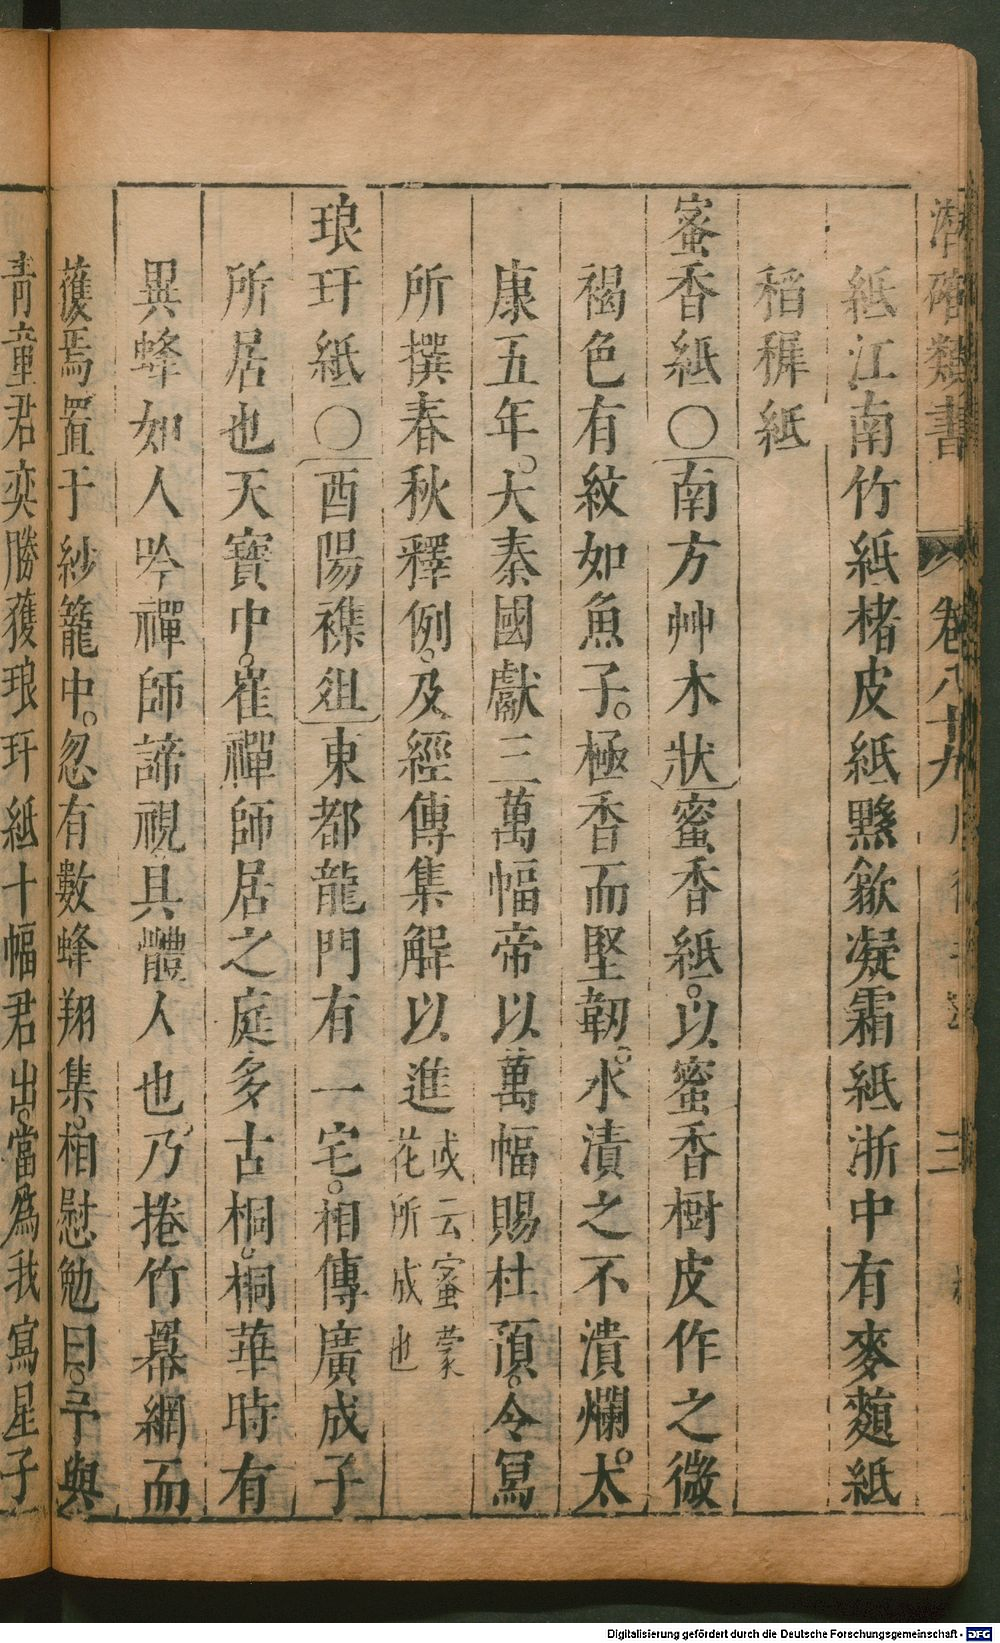 潛確類書 卷八十九 三
紙江南竹紙楮皮紙黟歙凝霜紙浙中有麥䴬紙
稻稈紙
蜜香紙〇南方艸木狀蜜香紙。以蜜香樹皮作之微
褐色有紋如魚子。極香而堅韌。水漬之不潰爛。太
康五年。大秦國獻三萬幅帝以萬幅賜杜預。令寫
所撰春秋釋例。及經傳集解以進或云蜜蒙花所成也
琅玕紙〇酉陽襍俎東都龍門有一宅。相傳廣成子
所居也天寶中。崔禪師居之庭多古桐。桐華時有
異蜂如人吟禪師諦視具體人也乃捲竹幕網而
獲焉置于紗籠中。忽有數蜂翔集。相慰勉曰。予與
青童君奕勝獲琅玕紙十幅君出。當為我寫星子
Digitalisierung gefördert durch die Deutsche Forschungsgemeinschaft - DFG